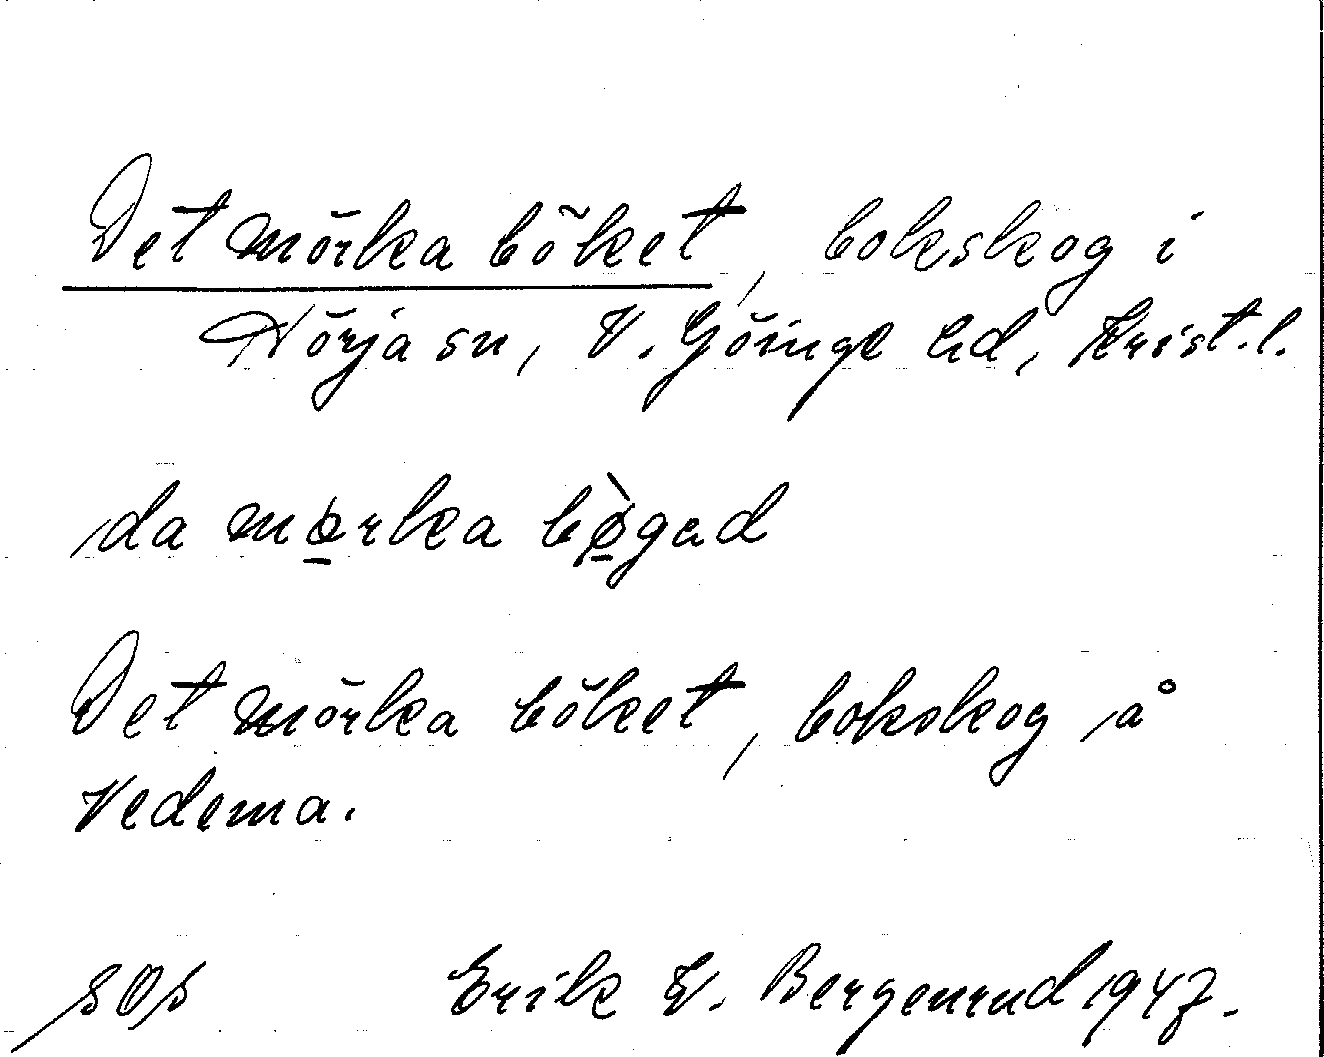 Det mörka böket, bokskog i
Nörja sn, V. Göinge hd, Krist. l.
da mørka bø̀gad
Det mörka böket, bokskog på
Vedema.
Erik W. Bergenrud 1947.